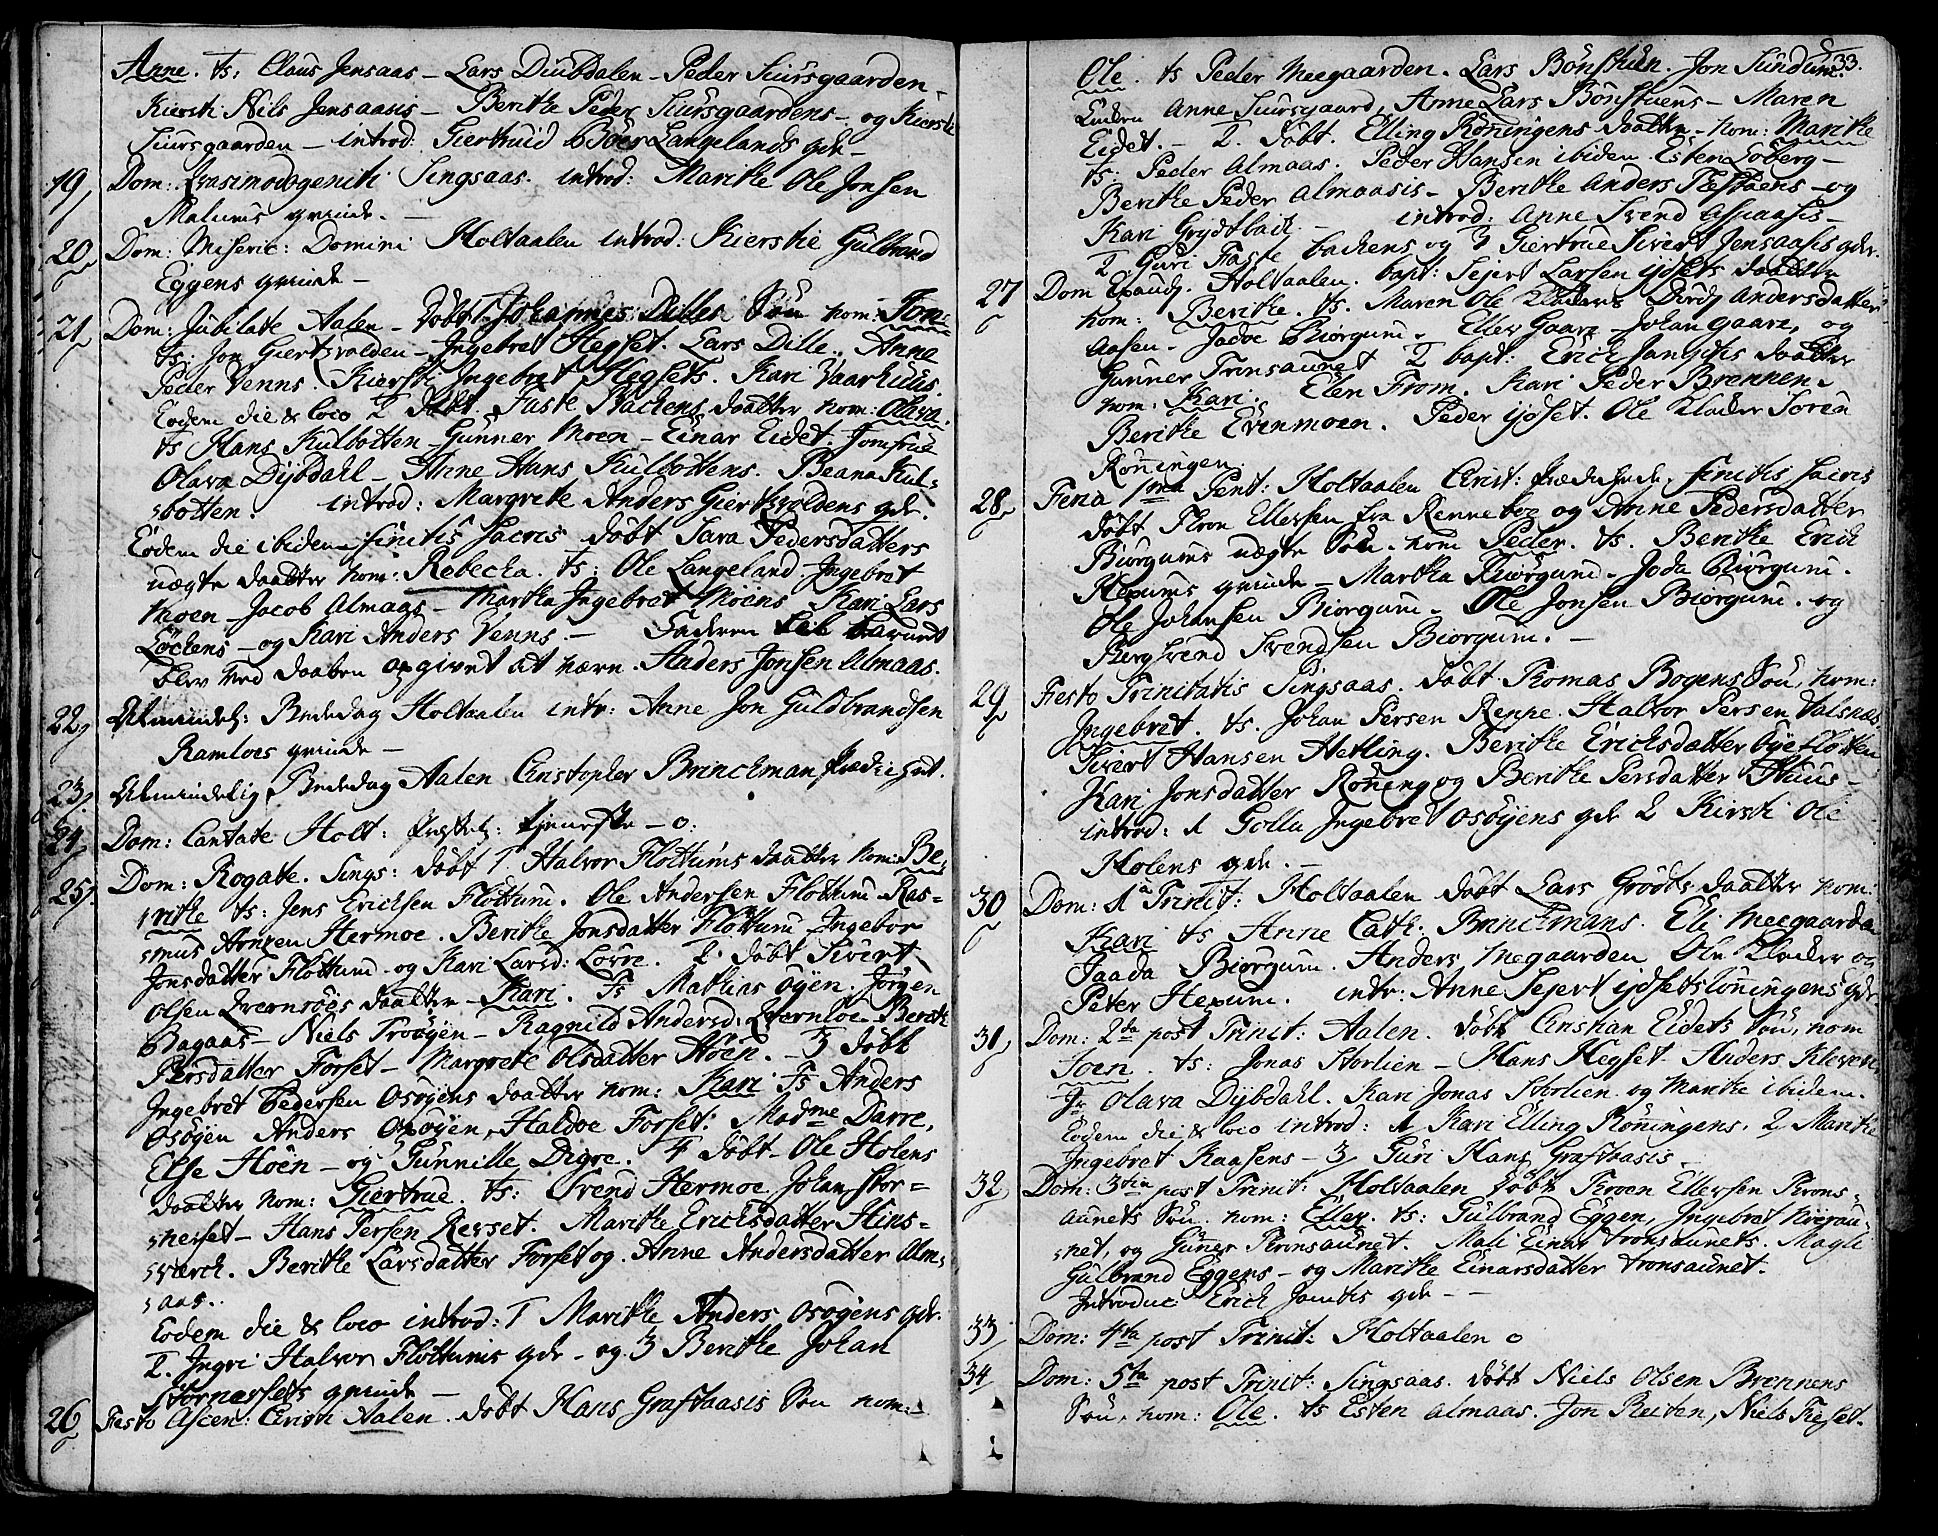 Anne. ts: Claus Jensaas – Lars Diubdalen – Peder Siursgaarden –
Kiersti Niels Jensaasis – Berithe Peder Siursgaardens – og Kiersti
Siursgaarden – introd: Giertruid Langelands qde –
19, Dom: Qvasimodogeniti Singsaas. introd: Marithe Ole Jonsen
qvinde. –
20, Dom: Miseric: Domini Holtaalen introd: Kierstie Gulbrand
Eggens qvinde –
21, Dom: Jubilate Aalen – døbt Johannes Dilles Søn nom: Jon:
ts: Jon Giertzvolden – Ingebret Hegset. Lars Dille, Anne
Peder Venns. Kiersti Ingebret Hegsets. Kari Vaarhuus.
Eodem die & loco 2 døbt. Faste Backens daatter nom: Olava.
ts Hans Kulbotten – Gunner Moen – Einar Eidet. Jomfrue
Olava Dijbdahl – Anne Hans Kulbottens. Beana Kul=
botten. introd: Margrete Anders Giertsvoldens qde.
Eodem die ibidem finitis sacris døbt Sara Pedersdatters
uægte daatter nom: Rebecka. ts: Ole Langeland Ingebret
Moen – Jacob Almaas – Martha Ingebret Moens Kari Lars
Løckens – og Kari Anders Venns. – Faderen til barnet
blev ved daaben opgivet at være Anders Jonsen Almaas.
22, Almindel: Bededag Holtaalen intr: Anne Jon Guldbrandsen
Ramloes qvinde –
23. Almindelig Bededag Aalen Christopher Brinckman prædiget.
24, Dom: Cantate Holt: tjeneste – o.
25, Dom: Rogate. Sings: døbt 1 Halvor Flottums daatter nom: Be=
rithe ts: Jens Erichsen Flottum. Ole Andersen Flottum Ras=
mus Arntzen Hermoe. Berithe Jonsdatter Flottum Ingebor
Jonsdatter Flottum – og Kari Larsd: Lovre. 2. døbt Sivert
Olsen Qvernøes daatter – Kari. Ts Mathias Øyen. Jørgen
Bagaas – Niels Troøyen – Ragnild Andersd: Berith
Persdatter Forset – Margrete Olsdatter Høen. – 3 døbt
Ingebret Pedersen Osøyens daatter nom: Kari Ts Anders
Osøyen Anders Osøyen, Haldoe Forset. Madme Darre,
Else Høen – og Gunnille Digre. 4 døbt – Ole Holens
daatter nom: Giertrue. ts: Svend Hermoe Johan Stor=
nesset – Hans Persen Rerset. Marithe Ericksdatter Hins=
værck. Berithe Larsdatter Forset og Anne Andersdatter Alm=
aas.
Eodem die & loco introd: 1 Marithe Anders Osøyens qde.
2. Ingri Halvor Flottums qde – og 3 Berithe Johan
Stornessets qvinde –
26 Festo Ascen: Christi Aalen. døbt Hans Graftaasis Søn nom:
33.
Ole. ts Peder Meegaarden. Lars Bønshun. Jon Sundum.
Anne Siursgaard, Anne Lars – Maren
Eidet. – 2. døbt. Elling Rønningens daatter – nom: Marithe
ts: Peder Almaas. Peder Hansen ibidem Esten Loberg –
Berithe Peder Almaasis – Berithe Anders – og
Kari Grydtbach – introd: Anne Svend Aspaasis –
2 Guri Faste Backens og 3 Giertrue Sivert Jensaasis qde.
27 Dom Exaudj. Holtaalen. bapt: Sejert Larsen ijdsets daatter
nom: Berithe. ts. Maren Ole Kladers Andersdatter
Aasen – Jadoe Biørgum. Eller Gaare Johan Gaare, og
Gunner Tronsaunet 2 bapt: Erich daatter
nom. Kari. Elen From. Kari Peder Brennen.
Berithe Evenmoen. Peder ijdset. Ole Klader Søren
Rønningen.
28, Feria 1ma Pent: Holtaalen Christ: prædikede. finitis sacris
døbt Thron Ellersen fra Renneboe og Anne Pedersdatter
Biørgums uægte Søn. nom Peder. ts. Berithe Erich
Hexums qvinde – Martha Biørgum – Joda Biørgum.
Ole Johansen Biørgum – Ole Jonsen Biørgum. og
Berg Svend Svendsen Biørgum. –
29, Festo Trinitatis Singsaas. døbt Thomas Bogens Søn, nom:
Ingebret. ts. Johan Persen Reppe. Halvor Persen Valsnæs
Sivert Hansen Hetling. Berithe Ericksdatter
Kari Jonsdatter Rønning og Berithe Persdatter Huus –
introd: 1 Golla Ingebret Osøyens qde 2 Kirsti Ole
Holens qde. –
30 Dom: 1a Trinit: Holtaalen døbt Lars Grodts daatter nom:
Kari ts Anne Cath: Brinckmans. Eli Meegaarden
Jaada Biørgum. Anders Megaarden Ole Klader og
Peter Hexum. intr: Anne Sejert qde
31, Dom: 2da post Trinit: Aalen. døbt Christian Eidets Søn, nom
Joen. ts: Jonas Storlien – Hans Hegset Anders
Jr Olava Dijbdahl. Kari Jonas Storlien og Marithe ibidem.
Eodem die & loco introd: 1 Kari Elling Rønningens. 2, Marithe
Ingebret Kaasens – 3, Guri Hans Graftaasis
32, Dom: 3tia post Trinit: Holtaalen døbt Throen Ellersen Trons=
aunets Søn. nom: Eller. ts: Gulbrand Eggen, Ingebret
net, og Guner Tronsaunet. Mali Einar Tronsaunets. Magli
Gulbrand Eggens – og Marithe Einarsdatter Tronsaunet.
Introduc: Erich qde – –
33 Dom: 4ta post Trinit: Holtaalen o
34 Dom: 5ta post Trinit: Singsaas. døbt Niels Olsen Brennens
Søn, nom: Ole. ts Esten Almaas. Jon Reiten, Niels